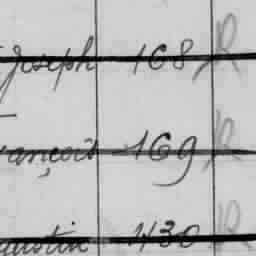 Joseph 168 R
rançois 169 R
gustin 430 R